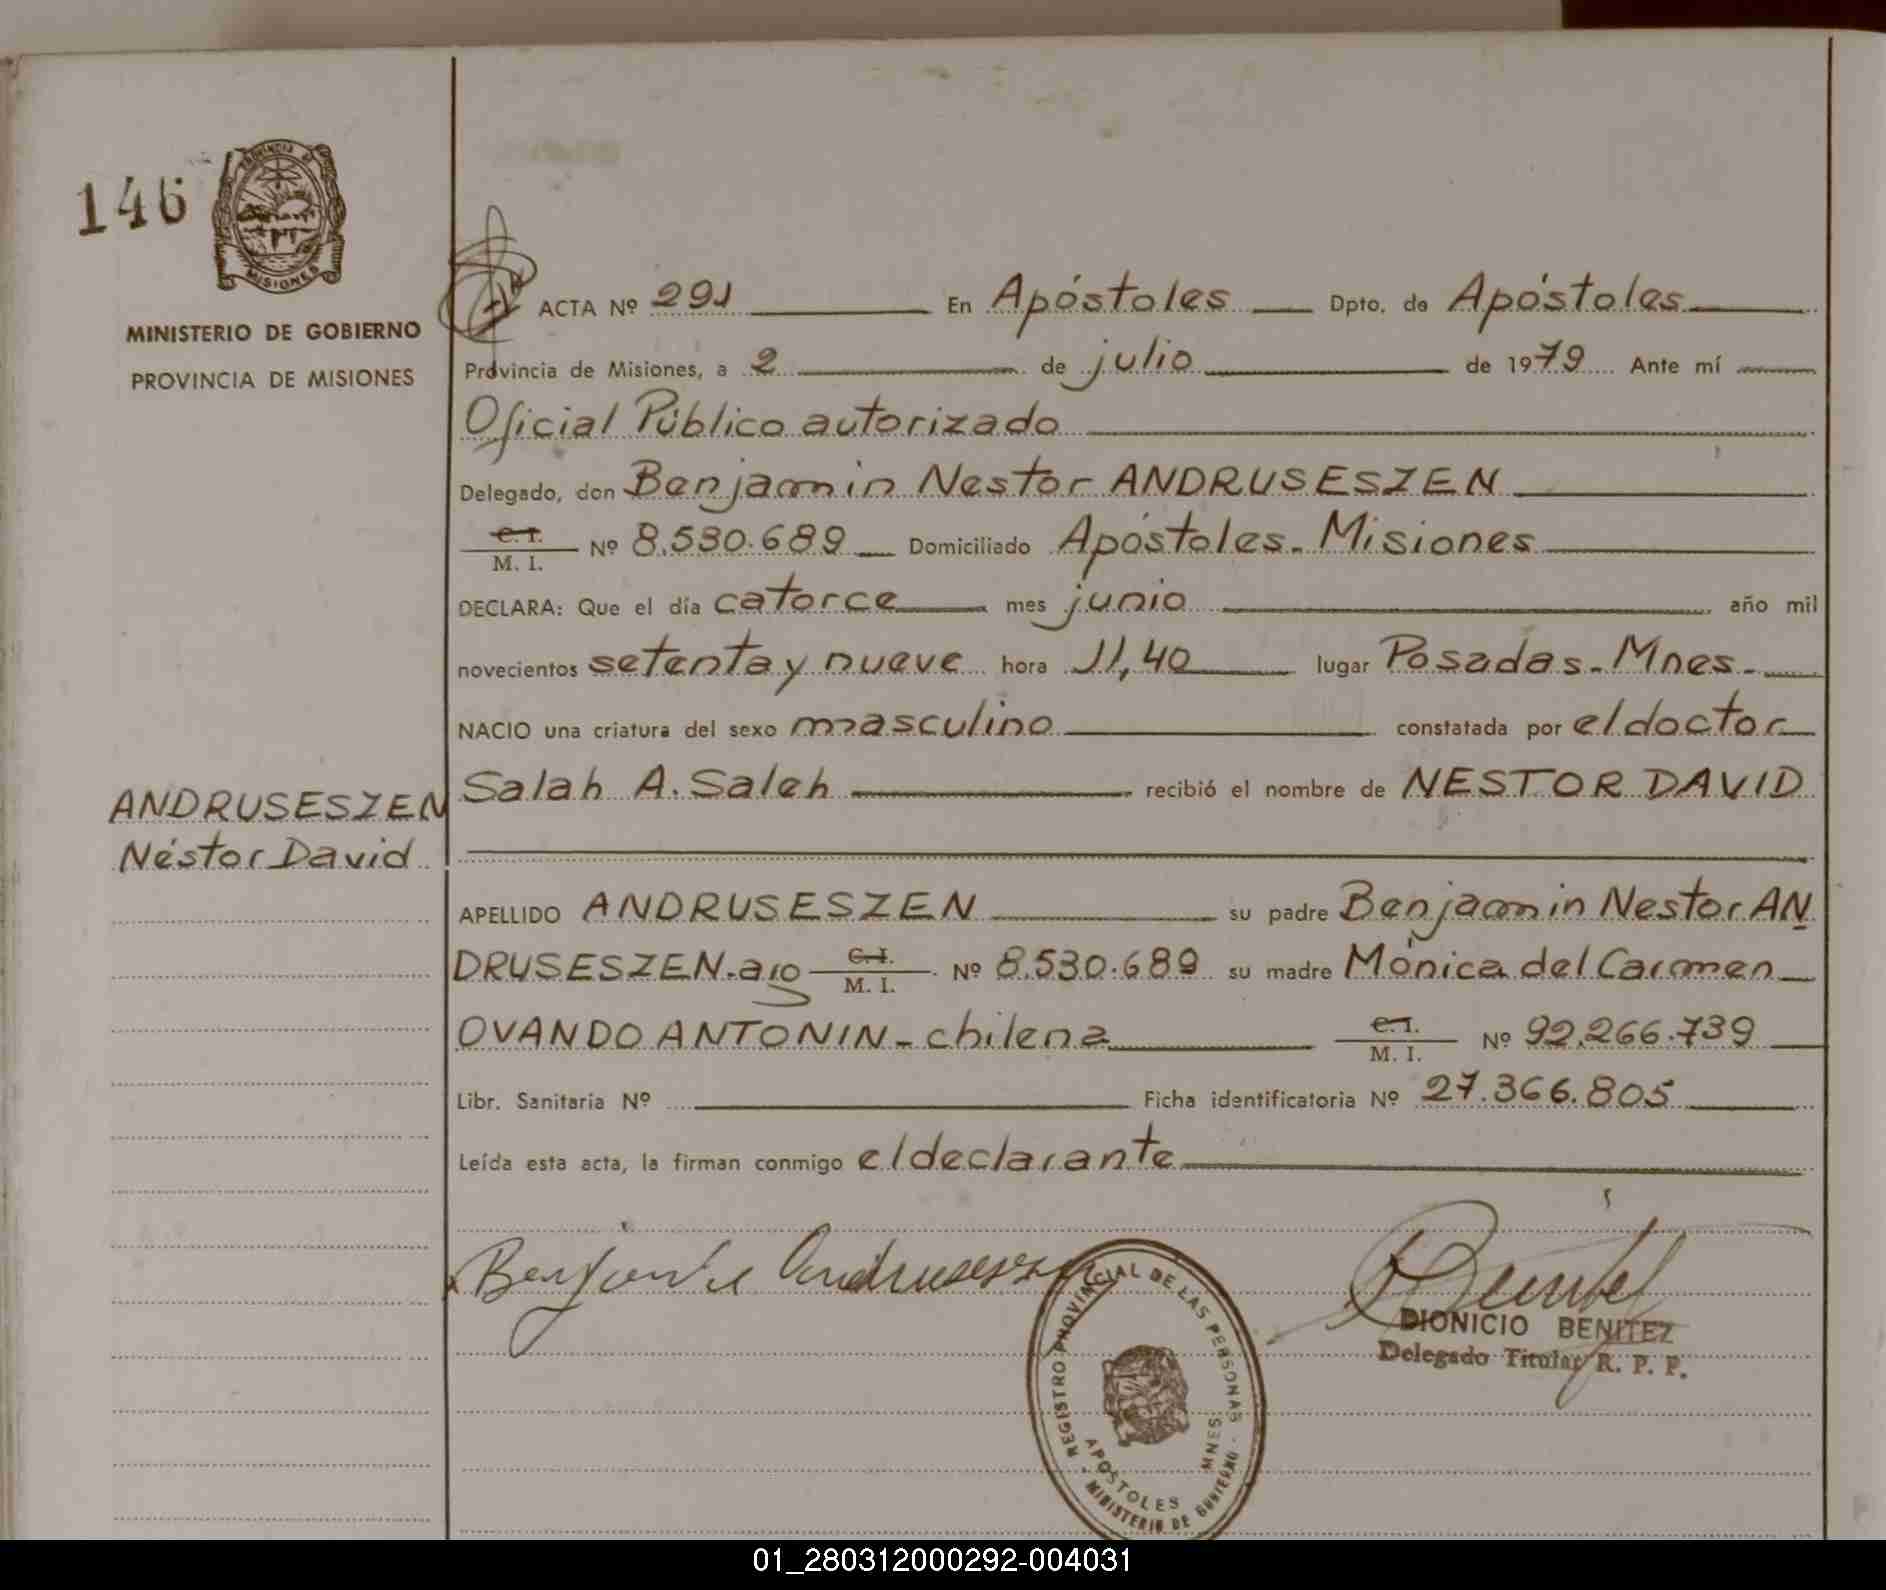 146
PROVINCIA DE
MISIONES
MINISTERIO DE GOBIERNO
PROVINCIA DE MISIONES
ACTA Nº 291 En Apóstoles Dpto. de Apóstoles
Provincia de Misiones, a 2 de julio de 1979 Ante mí
Oficial Público autorizado
Delegado, don Benjamin Nestor ANDRUSESZEN
C. I.
M. I. Nº 8.530.689 Domiciliado Apóstoles. Misiones
DECLARA: Que el día catorce mes junio año mil
novecientos setenta y nueve hora 11,40 lugar Posadas. Mnes.
NACIO una criatura del sexo masculino constatada por el doctor
Salah A. Saleh recibió el nombre de NESTOR DAVID
ANDRUSESZEN
Néstor David
APELLIDO ANDRUSESZEN su padre Benjamin Nestor AN
DRUSESZEN-arg C. I.
M. I. Nº 8.530.689 su madre Mónica del Carmen
OVANDO ANTONIN - chilena C. I.
M. I. Nº 92.266.739
Libr. Sanitaria Nº Ficha identificatoria Nº 27.366.805
Leída esta acta, la firman conmigo el declarante
REGISTRO PROVINCIAL DE LAS PERSONAS
APOSTOLES MNES
MINISTERIO DE GOBIERNO
DIONICIO BENITEZ
Delegado Titular R. P. P.
01_280312000292-004031